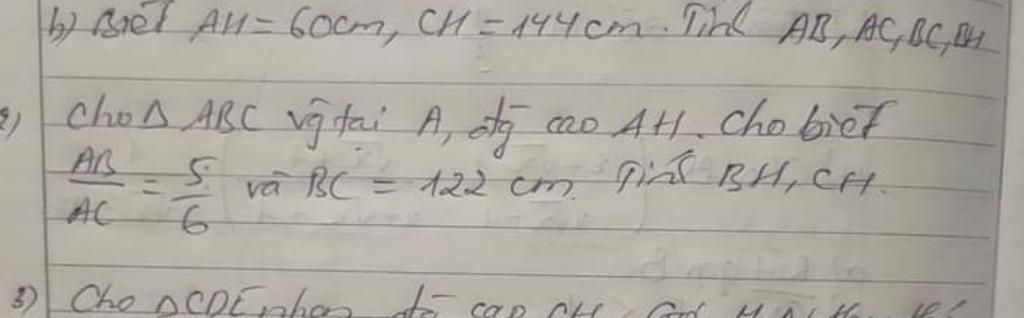 b) Biết AH = 60cm, CH = 144cm. Tính AB, AC, BC, BH
2) Cho Δ ABC vg tại A, đg cao AH. Cho biết
AB/AC = 5/6 và BC = 122 cm. Tính BH, CH.
3) Cho ΔCDE nhọn đg cao CH